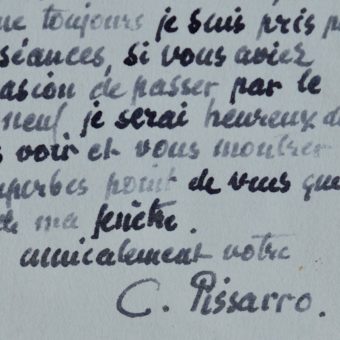 me toujours je suis pris p
séances, si vous aviez
asion de passer par le
neuf je serai heureux de
s voir et vous montrer
uperbes point de vues que
de ma fenêtre.
amicalement votre
C. Pissarro.